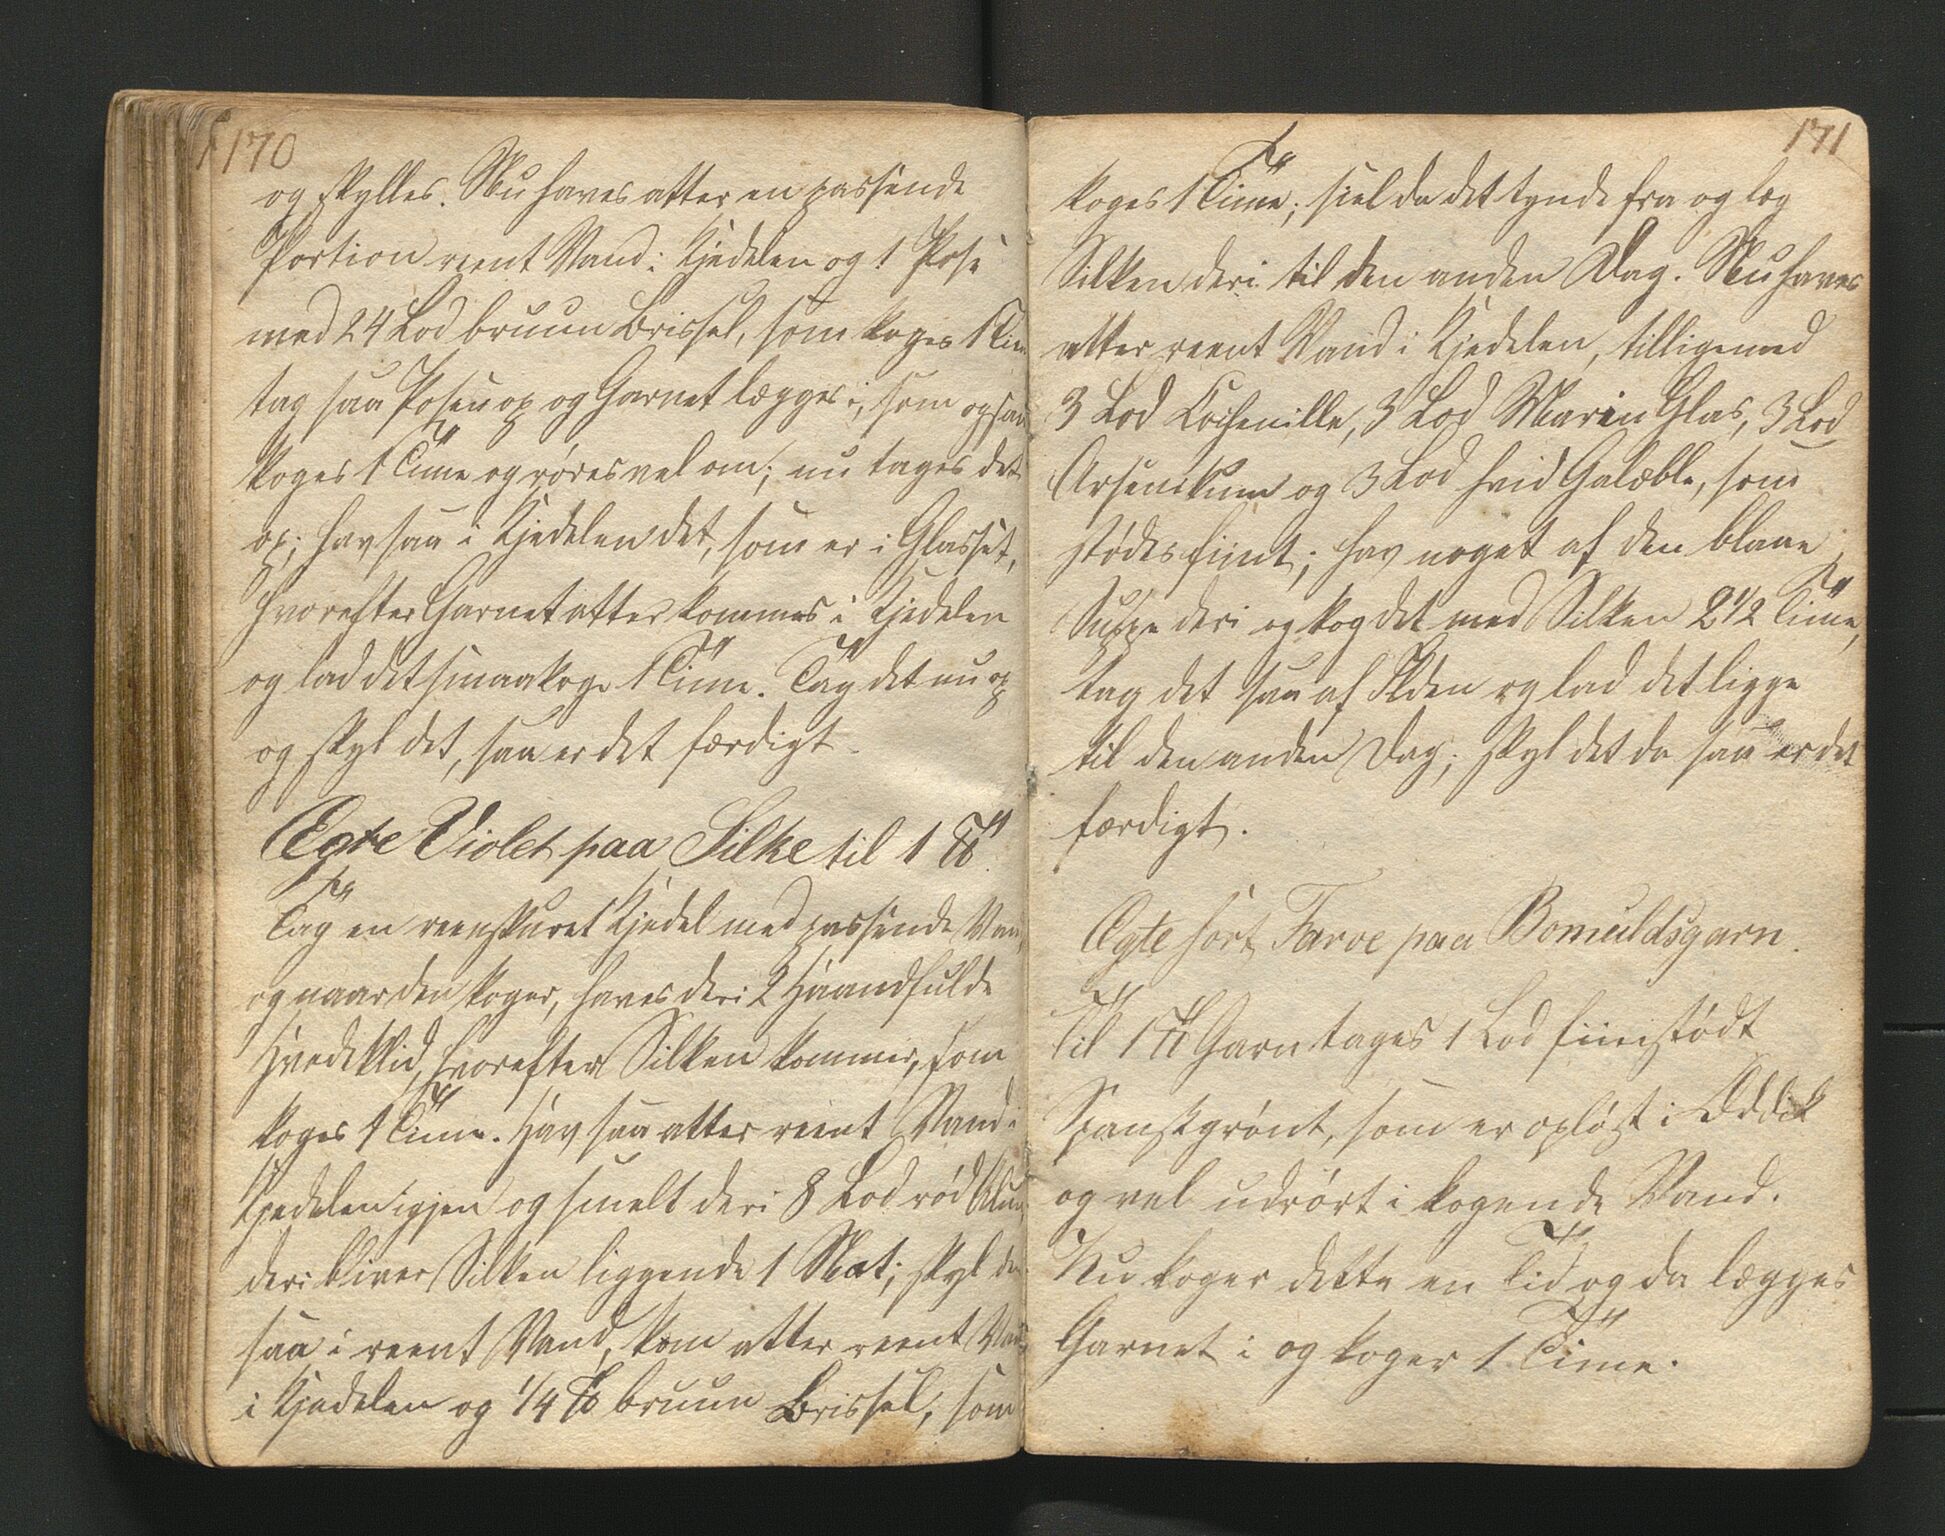 170
og skylles. Nu haves atter en passende
Portion reent Vand i Kjedelen og 1 Pose
med 24 Lod bruun Brissel, som koges 1 Tim
tag saa Posen op og Garnet lægges i, som ogsaa
koges 1 Time og røres vel om; nu tages det
op; hav saa i Kjedelen det, som er i Glasset,
hvorefter Garnet atter kommes i Kjedelen
og lad det smaakoge 1 Time. Tag det nu op
og skyl det, saa er det færdigt.
Ægte Violet paa Silke til 1 ℔.
Tag en reenskuret Kjedel med passende Vand,
og naar den koger, haves deri 2 Haandfulde
Hvedeklid, hvorefter Silken kommer, som
koges 1 Time. Hav saa atter reent Vand i
Kjedelen igjen og smelt deri 8 Lod rød Alun,
deri bliver Silken liggende 1 Nat; skyl den
saa i reent Vand, kom atter reent Vand
i Kjedelen og 1/4 ℔ bruun Brissel, som
171
koges 1 Time; siel da det tynde fra og læg
Silken deri til den anden Dag. Nu haves
atter reent Vand i Kjedelen, tilligemed
3 Lod Cochenille, 3 Lod Marin Glas, 3 Lod
Arsenikum og 3 Lod hvid Galæble, som
stødes fiint; hav noget af den blaae
Suppe deri og kog det med Silken 2 1/2 Time,
tag det saa af Ilden og lad det ligge
til den anden Dag; skyl det da saa er det
færdigt.
Ægte sort Farve paa Bomuldsgarn.
Til 1 ℔ Garn tages 1 Lod fiinstødt
Spanskgrønt, som er opløst i Eddik
og vel udrørt i kogende Vand.
Nu koger dette en Tid og da lægges
Garnet i og koger 1 Time.